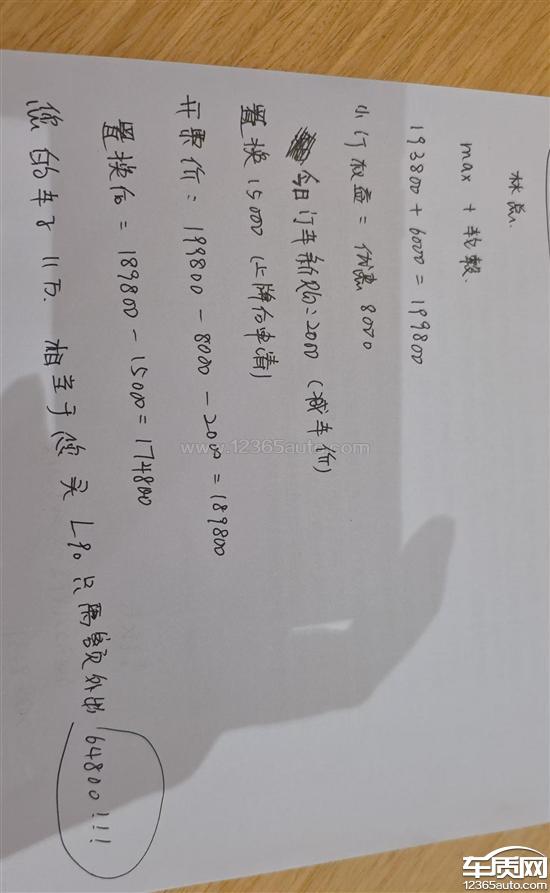 林总.
max + 乾毂.
193800 + 6000 = 199800
小订权益 = 优惠 8000
今日订车新购: 2000 (减车价)
置换 15000 (上牌后申请)
开票价: 199800 - 8000 - 2000 = 189800
置换后 = 189800 - 15000 = 174800
您的车子 11万. 相当于您买 L90 只需额外出 64800!!!
www.12365auto.com
车质网
12365auto.com